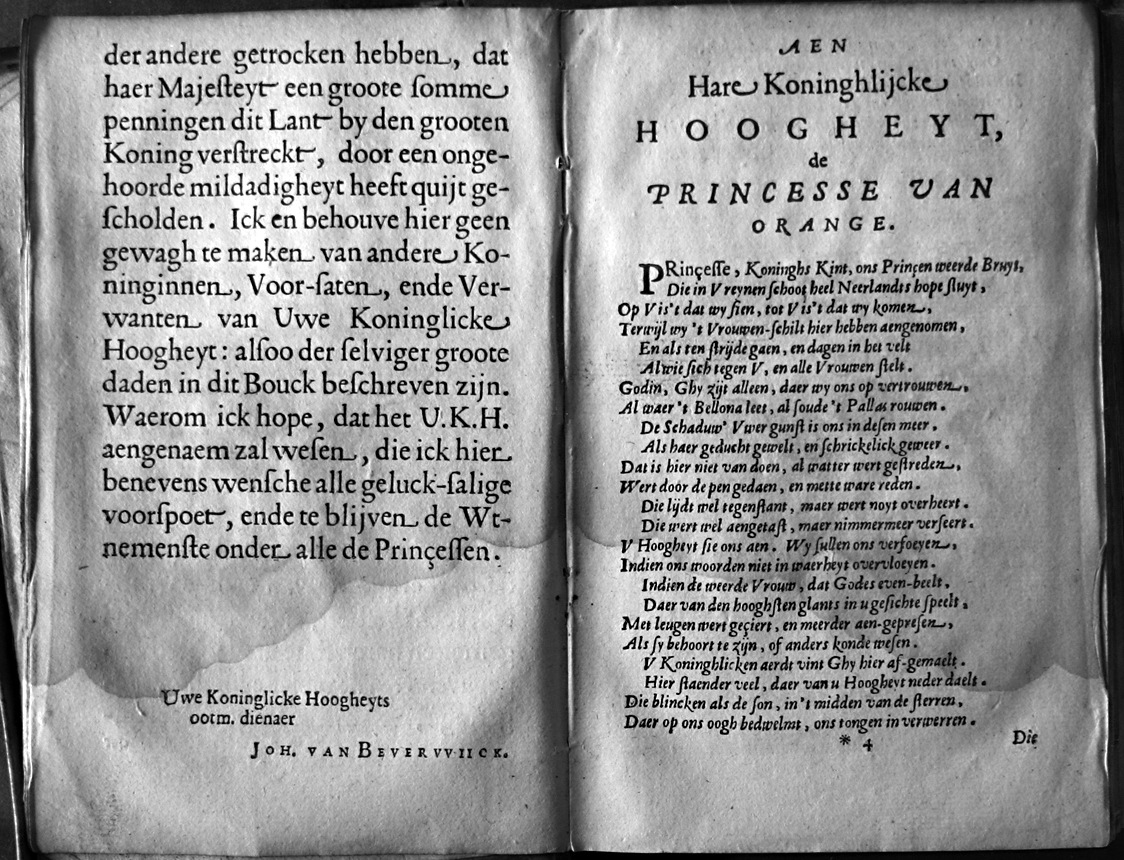 der andere getrocken hebben, dat
haer Majeſteyt een groote ſomme
penningen dit Lant by den grooten
Koning verſtreckt, door een onge-
hoorde mildadigheyt heeft quijt ge-
ſcholden. Ick en behouve hier geen
gewagh te maken van andere Ko-
ninginnen, Voor-ſaten, ende Ver-
wanten van Uwe Koninglicke
Hoogheyt: alſoo der ſelviger groote
daden in dit Bouck beſchreven zijn.
Waerom ick hope, dat het U.K.H.
aengenaem zal weſen, die ick hier
benevens wenſche alle geluck-ſalige
voorſpoet, ende te blijven de Wt-
nemenſte onder alle de Prinçeſſen.
Uwe Koninglicke Hoogheyts
ootm. dienaer
JOH. VAN BEVERVVIICK.
AEN
Hare Koninghlijcke
HOOGHEYT,
de
PRINCESSE VAN
ORANGE.
PRinçeſſe, Koninghs Kint, ons Prinçen weerde Bruyt,
Die in V reynen ſchoot heel Neerlandts hope ſluyt,
Op V is't dat wy ſien, tot V is't dat wy komen,
Terwijl wy 't Vrouwen-ſchilt hier hebben aengenomen,
En als ten ſtrijde gaen, en dagen in het velt
Al wie ſich tegen V, en alle Vrouwen ſtelt.
Godin, Ghy zijt alleen, daer wy ons op vertrouwen,
Al waer 't Bellona leet, al ſoude 't Pallas rouwen.
De Schaduw' Vwer gunſt is ons in deſen meer
Als haer geducht gewelt, en ſchrickelick geweer.
Dat is hier niet van doen, al watter wert geſtreden,
Wert door de pen gedaen, en mette ware reden.
Die lijdt wel tegenſtant, maer wert noyt overheert.
Die wert wel aengetaſt, maer nimmermeer verſeert.
V Hoogheyt ſie ons aen. Wy ſullen ons verfoeyen,
Indien ons woorden niet in waerheyt overvloeyen.
Indien de weerde Vrouw, dat Godes even-beelt,
Daer van den hooghſten glants in u geſichte ſpeelt,
Met leugen wert geçiert, en meerder aen-gepreſen,
Als ſy behoort te zijn, of anders konde weſen.
V Koninghlicken aerdt vint Ghy hier af-gemaelt.
Hier ſtaender veel, daer van u Hoogheyt neder daelt.
Die blincken als de ſon, in't midden van de ſterren,
Daer op ons oogh bedwelmt, ons tongen in verwerren.
* 4 Die